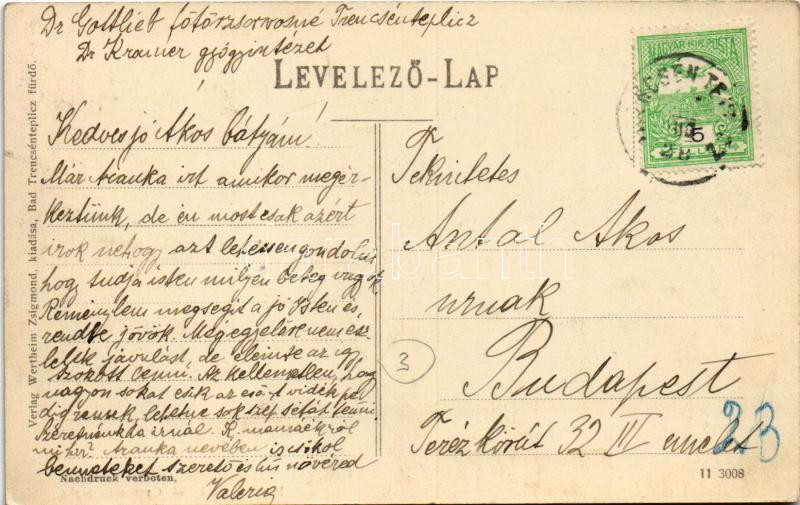 Dr Gottlieb főtörzsorvosné Trencsénteplicz
Dr Kramer gyógyintézet
LEVELEZŐ-LAP
MAGYAR KIR. POSTA
5
Kedves jó Akos bátyám!
Már Aranka irt amikor megér-
keztünk, de én most csak azért
irok nehogy azt lehessen gondolni
hogy tudja isten milyen beteg vagyok
Reménylem megsegit a jó Isten és
rendbe jövök. Még egyelőre nem és-
lelek javulást, de eleinte az igy
szokott lenni. Az kellemetlen, hogy
nagyon sokat esik az eső. A vidék pe
dig remek, lehetne sok szép sétát tenni
Szeretném ha irnál. K. mamáékról
mi hir? Aranka nevében is csókol
benneteket szerető és hű nővéred
Valeria
Tekintetes
Antal Akos
urnak
Budapest
Teréz körút 32 III emelet
3
23
Verlag Wertheim Zsigmond, kiadása, Bad Trencsénteplicz fürdő.
Nachdruck verboten.
11 3008
darabanth